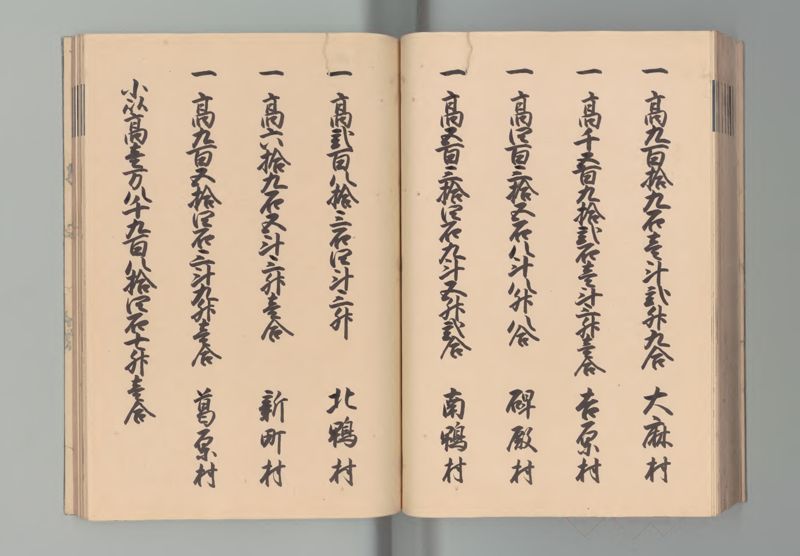 一 高九百拾九石壱斗弐升九合 大麻村
一 高千五百九拾弐石壱斗六升壱合 吉原村
一 高四百三拾五石八斗八升八合 碑殿村
一 高五百三拾四石九斗五升弐合 南鴨村
一 高弐百八拾三石四斗三升 北鴨村
一 高六拾九石五斗三升壱合 新町村
一 高九百五拾四石三斗九升壱合 葛原村
小以高壱万八千九百八拾四石七升壱合